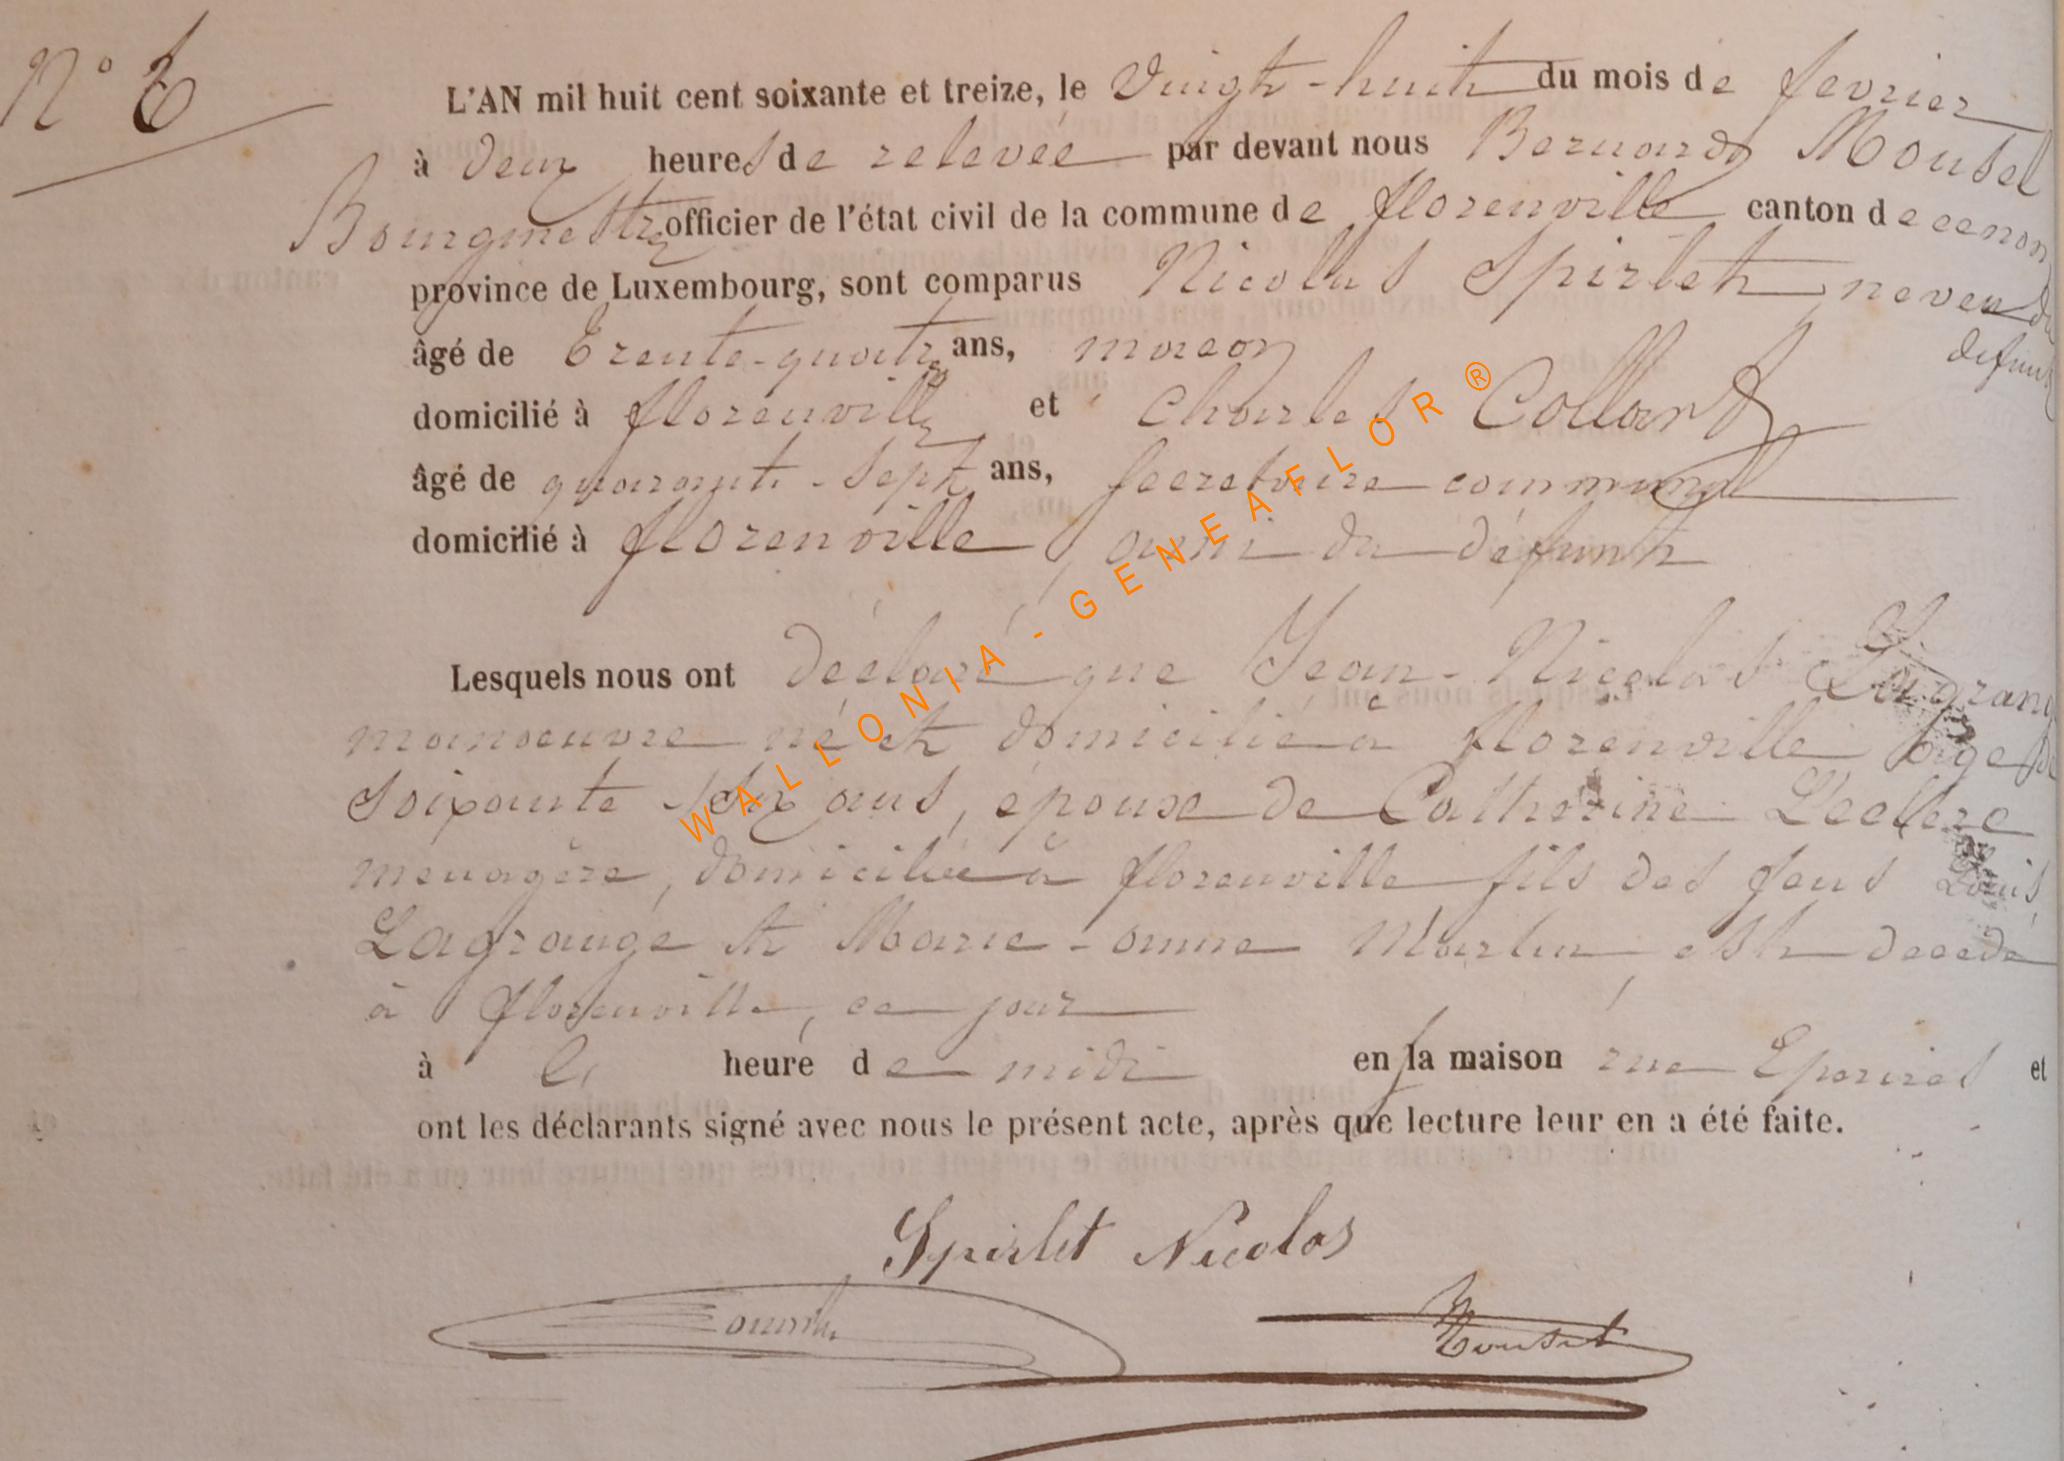 N°
L'AN mil huit cent soixante et treize, le Vingt-huit du mois de fevrier
à deux heures de relevée par devant nous Bernard
Bourgmestre officier de l'état civil de la commune de florenville canton de ce nom
province de Luxembourg, sont comparus Nicollas Spirlet, neveu du
defunt
âgé de trente-quatre ans, macon
domicilié à florenville et Charles Collard
âgé de quarante-sept ans, secretaire communal
domicilié à florenville, ami du défunt
Lesquels nous ont déclaré que Jean-Nicolas Lagrange
manoeuvre né et domicilié à florenville age de
soixante ans, époux de Catherine Leclerc
menagère, domiciliée à florenville fils des feus Louis
Lagrange et Marie-anne Martin, est decedé
à florenville, ce jour
à heure de midi en la maison rue et
ont les déclarants signé avec nous le présent acte, après que lecture leur en a été faite.
Spirlet Nicolas
WALLONIA-GENEAFLOR®